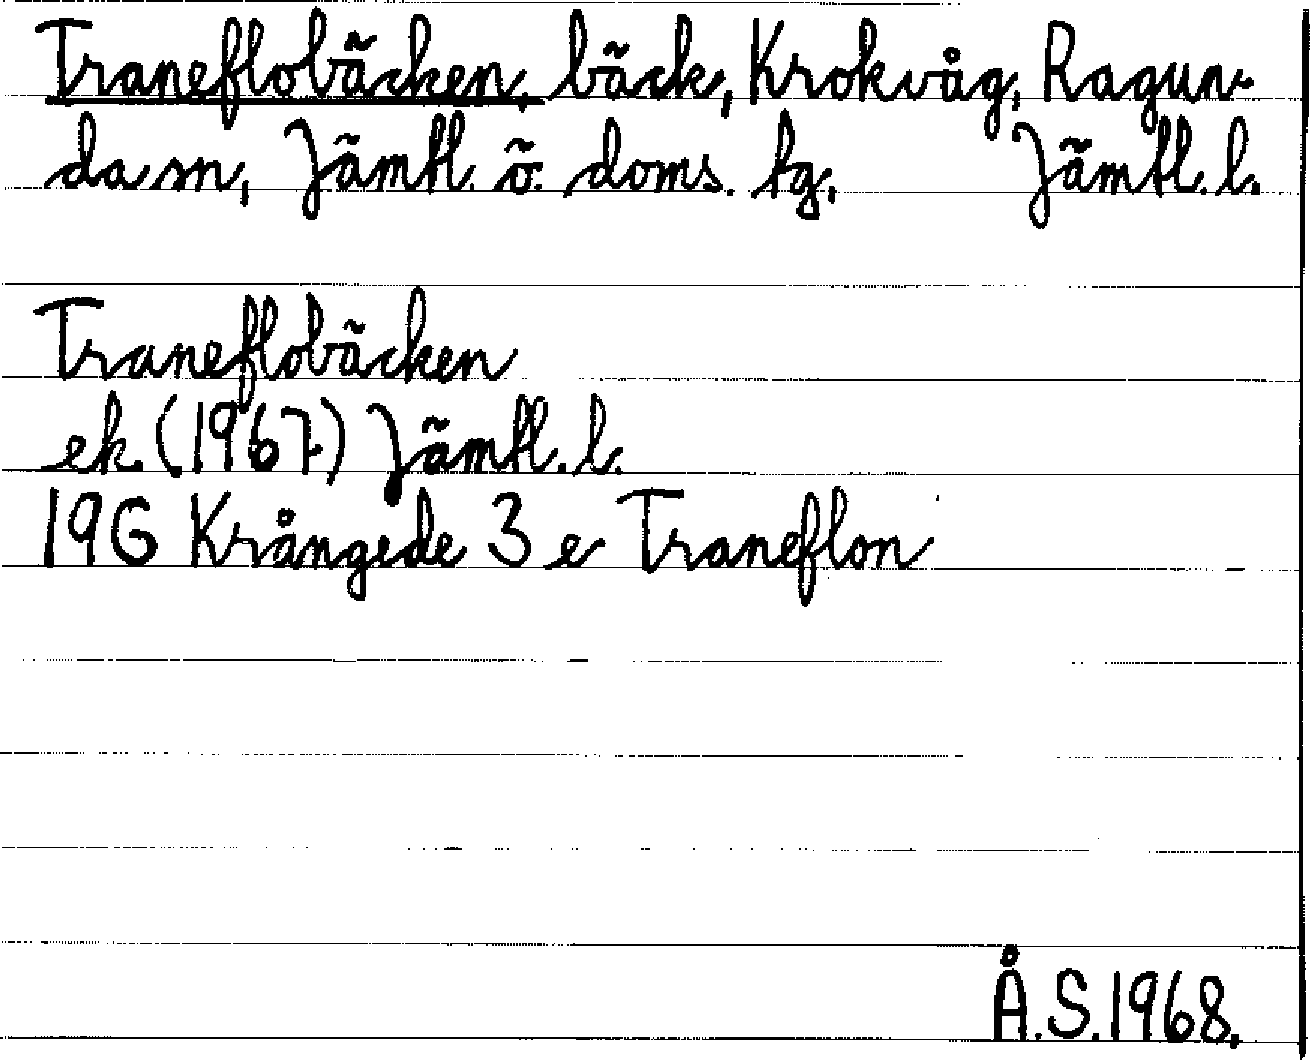 Traneflobäcken, bäck, Krokvåg, Ragun-
da sn, Jämtl. ö. doms. tg, Jämtl. l.
Traneflobäcken
ek. (1967) Jämtl. l.
19G Krångede 3 e Traneflon
Å.S.1968.